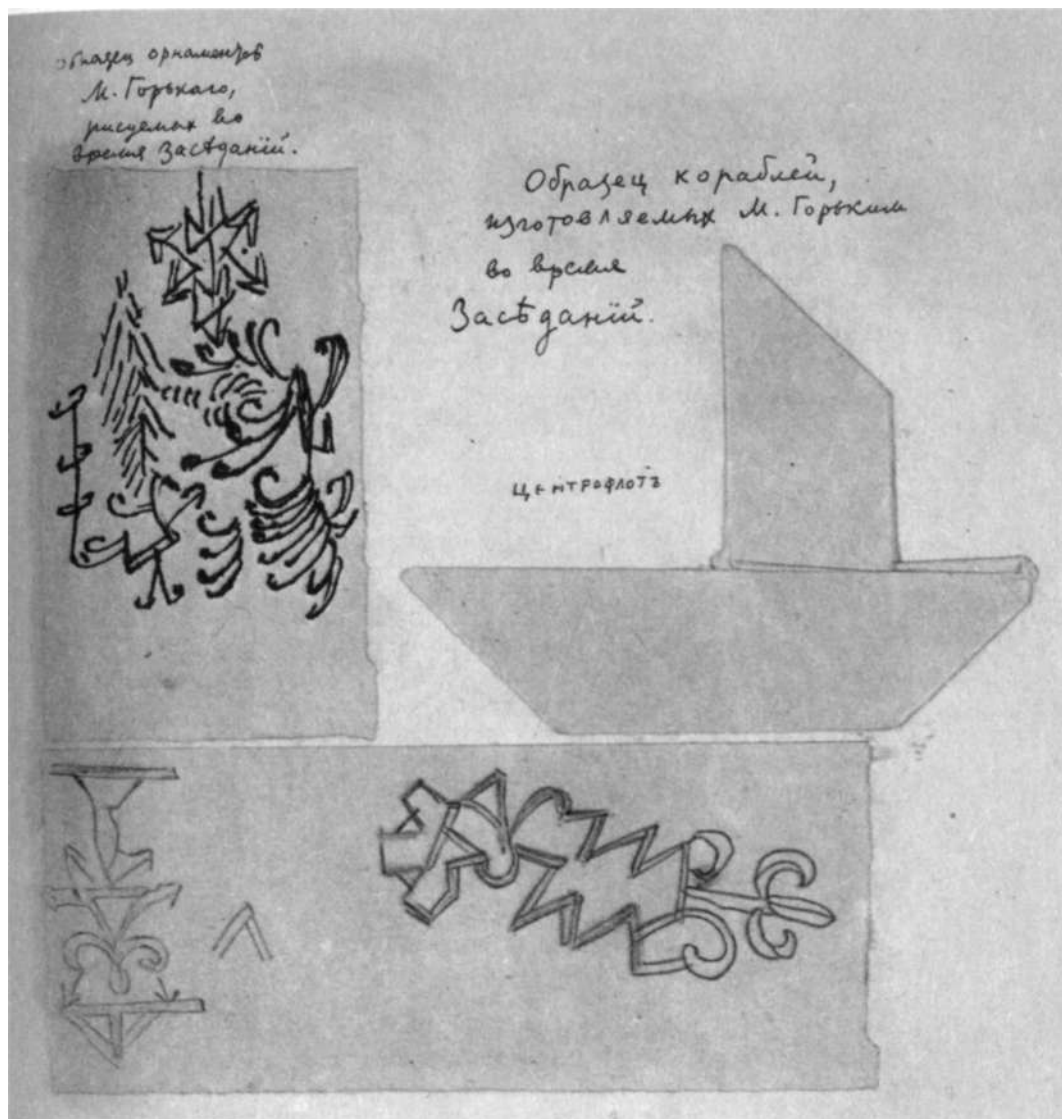 образец орнаментов
М. Горькаго,
рисуемых во
время Засѣданій.
Образец кораблей,
изготовляемых М. Горьким
во время
Засѣданій.
ЦЕНТРОФЛОТЪ